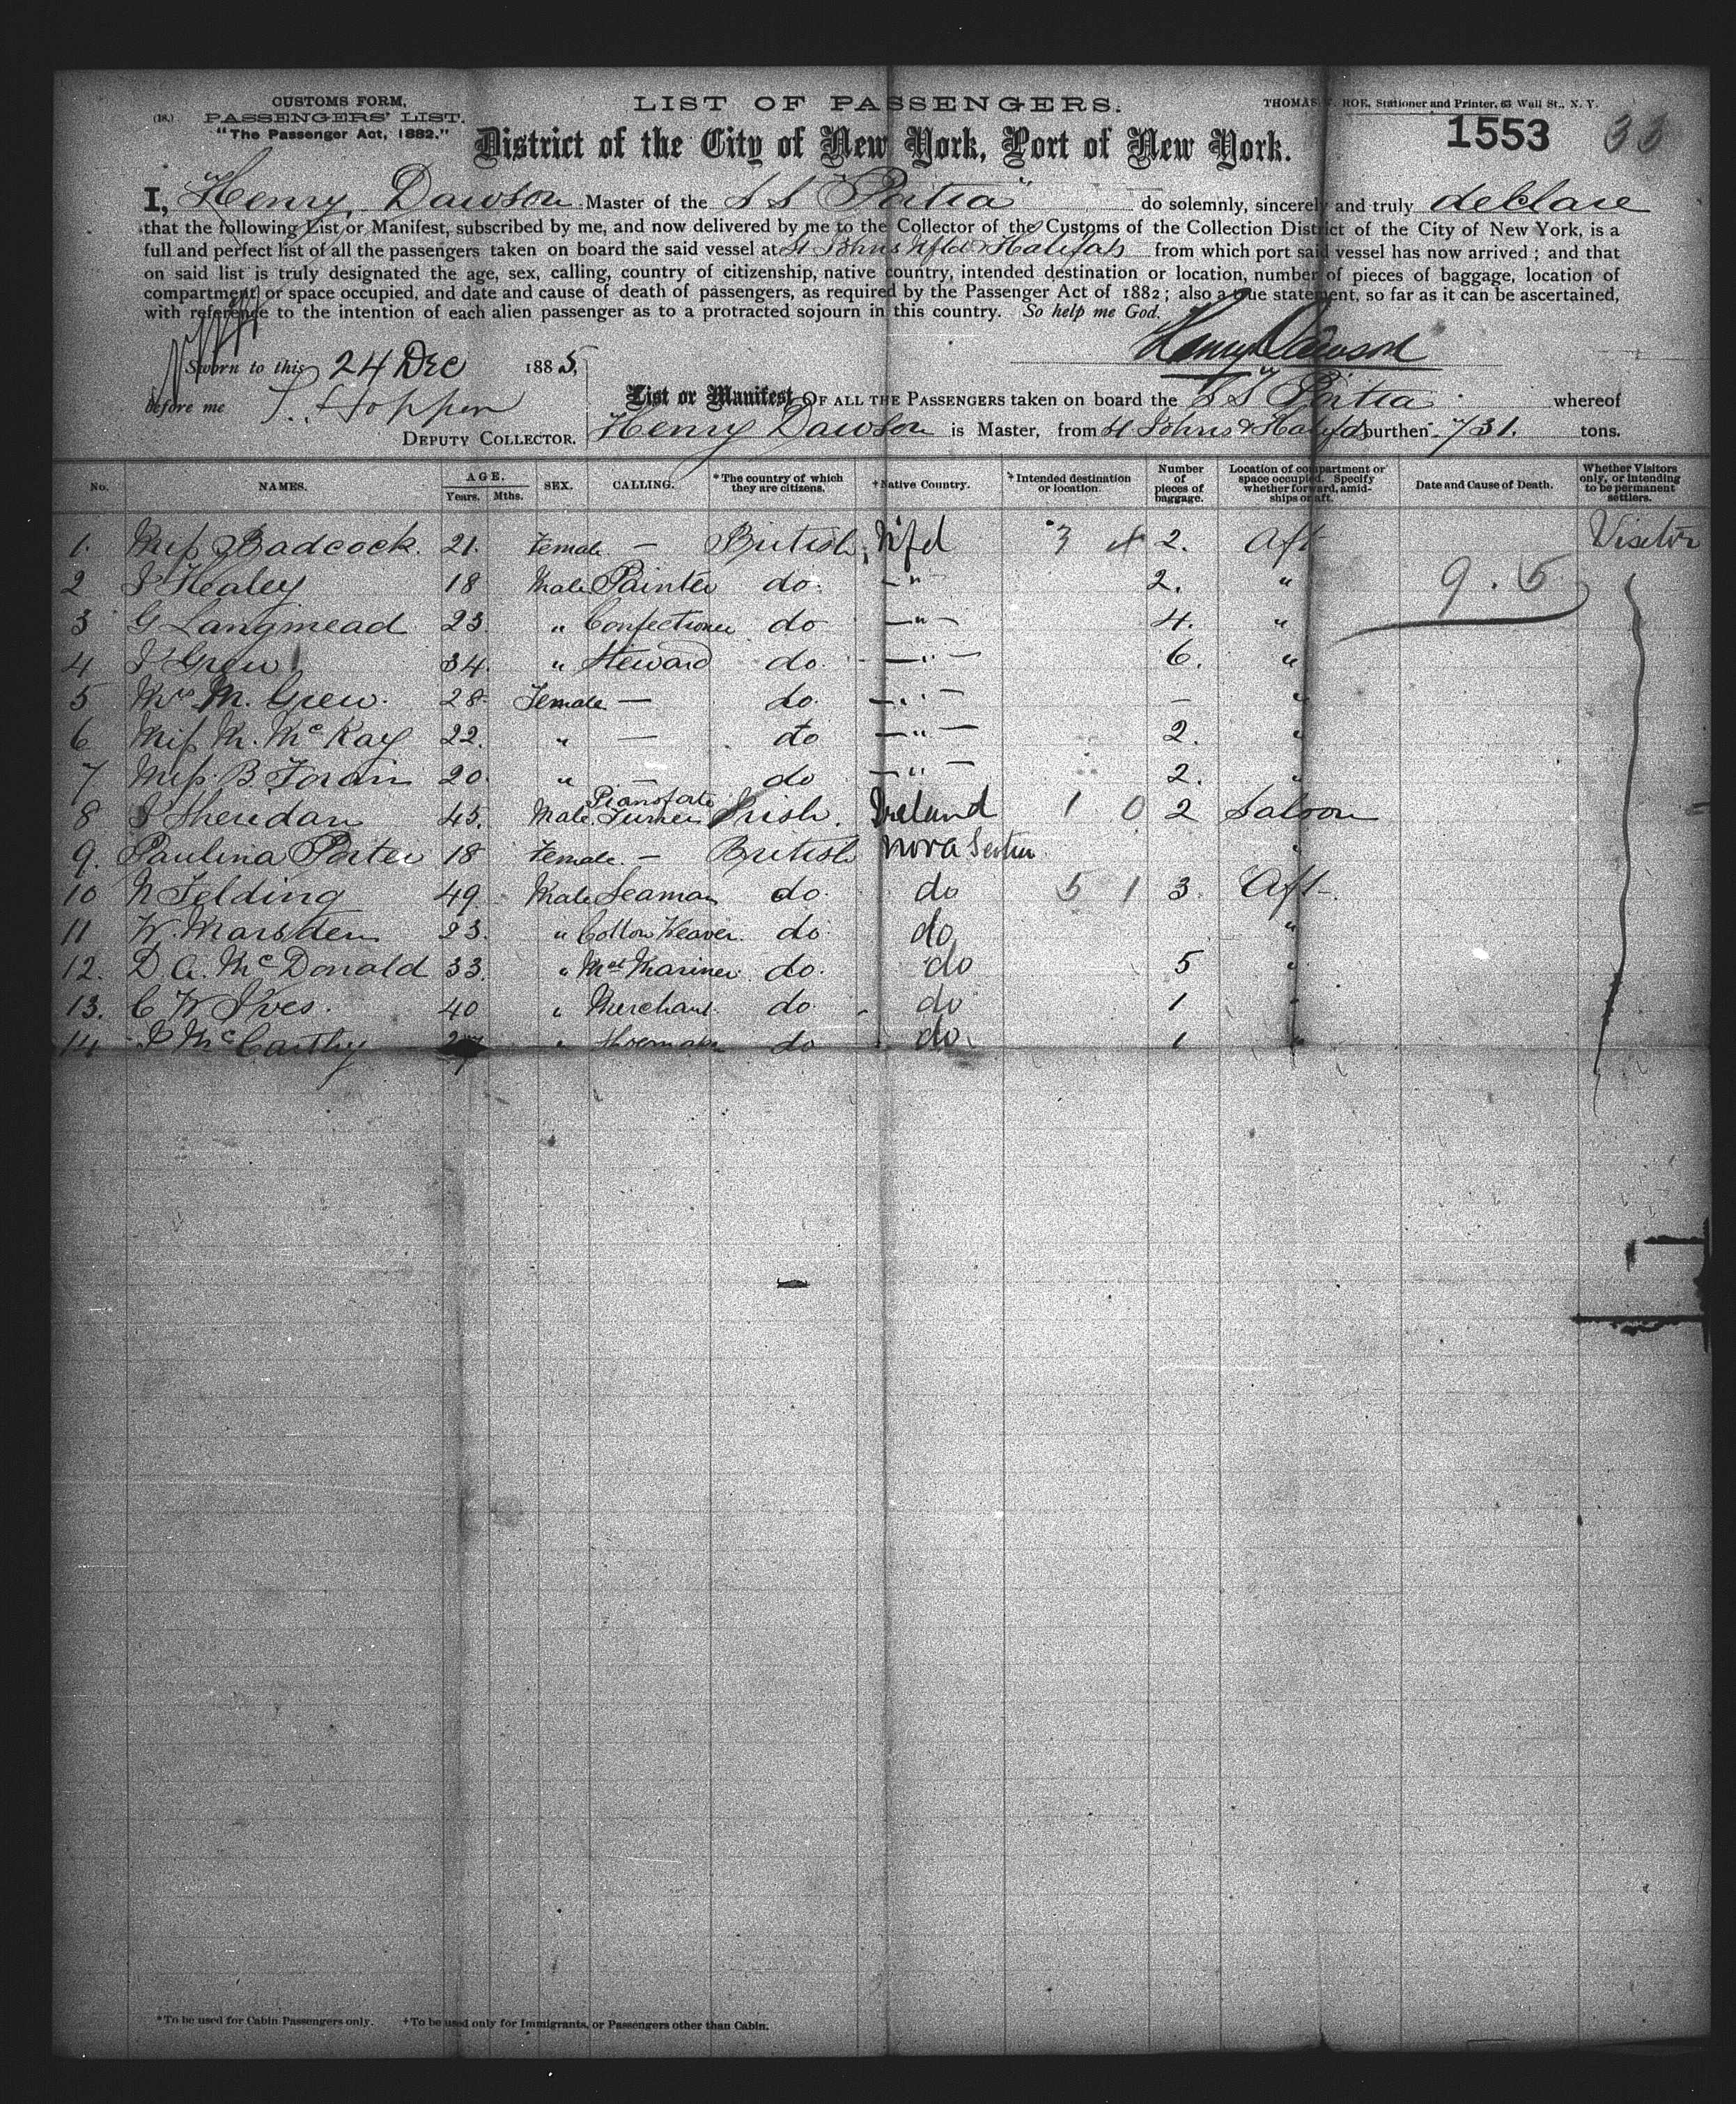 CUSTOMS FORM,
(18.) PASSENGERS' LIST.
"The Passenger Act, 1882."
LIST OF PASSENGERS.
THOMAS W. ROE, Stationer and Printer, 63 Wall St., N. Y.
District of the City of New York, Port of New York.
1553 33
I, Henry Dawson Master of the S S "Portia" do solemnly, sincerely and truly declare
that the following List or Manifest, subscribed by me, and now delivered by me to the Collector of the Customs of the Collection District of the City of New York, is a
full and perfect list of all the passengers taken on board the said vessel at St Johns Nfld & Halifax from which port said vessel has now arrived; and that
on said list is truly designated the age, sex, calling, country of citizenship, native country, intended destination or location, number of pieces of baggage, location of
compartment or space occupied, and date and cause of death of passengers, as required by the Passenger Act of 1882; also a true statement, so far as it can be ascertained,
with reference to the intention of each alien passenger as to a protracted sojourn in this country. So help me God.
Henry Dawson
Sworn to this 24 Dec 1885,
before me T. Hopper
DEPUTY COLLECTOR.
List or Manifest OF ALL THE PASSENGERS taken on board the S S "Portia" whereof
Henry Dawson is Master, from St Johns & Halifax burthen 731. tons.
No. NAMES. AGE. Years. Mths. SEX. CALLING. *The country of which they are citizens. †Native Country. †Intended destination or location. Number of pieces of baggage. Location of compartment or space occupied. Specify whether forward, amidships or aft. Date and Cause of Death. Whether Visitors only, or intending to be permanent settlers.
1. Miss Badcock. 21. Female — British Nfld 3 4 2. Aft Visitor
2 J Healey 18 Male Painter do. —"— 2. " 9.5
3 G Langmead 23 " Confectioner do —"— 4. "
4 J Grew 34. " Steward do. —"— 6. "
5 Mrs M. Grew. 28. Female — do. —"— — "
6 Miss M. McKay 22. " — do —"— 2. "
7 Miss B. Foran 20. " — do —"— 2. "
8 J Sheridan 45. Male Pianoforte Turner Irish. Ireland 1 0 2 Saloon
9. Paulina Porter 18 Female. — British Nova Scotia "
10 N Felding 49. Male Seaman do. do 5 1 3. Aft
11 W. Marsden 23. " Cotton Weaver. do. do "
12. D A. McDonald 33. " Mat Mariner do. do 5 "
13. C W Ives. 40 " Merchant. do. do 1 "
14 P McCarthy 27 " Shoemaker do do. 1 "
*To be used for Cabin Passengers only. †To be used only for Immigrants, or Passengers other than Cabin.